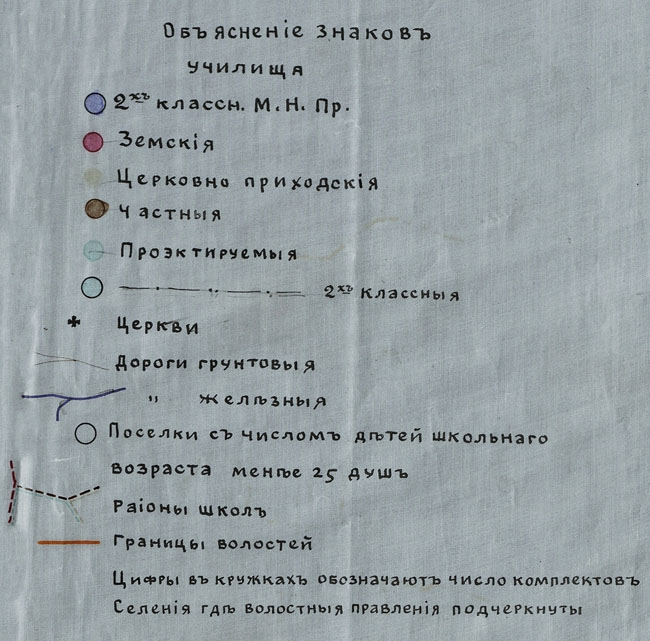 Объясненіе знаковъ
Училища
2хъ классн. М. Н. Пр.
Земскія
Церковно приходскія
Частныя
Проэктируемыя
—·—··—·— 2хъ классныя
Церкви
Дороги грунтовыя
" желѣзныя
Поселки съ числомъ дѣтей школьнаго
возраста менѣе 25 душъ
Раіоны школъ
Границы волостей
Цифры въ кружкахъ обозначаютъ число комплектовъ
Селенія гдѣ волостныя правленія подчеркнуты